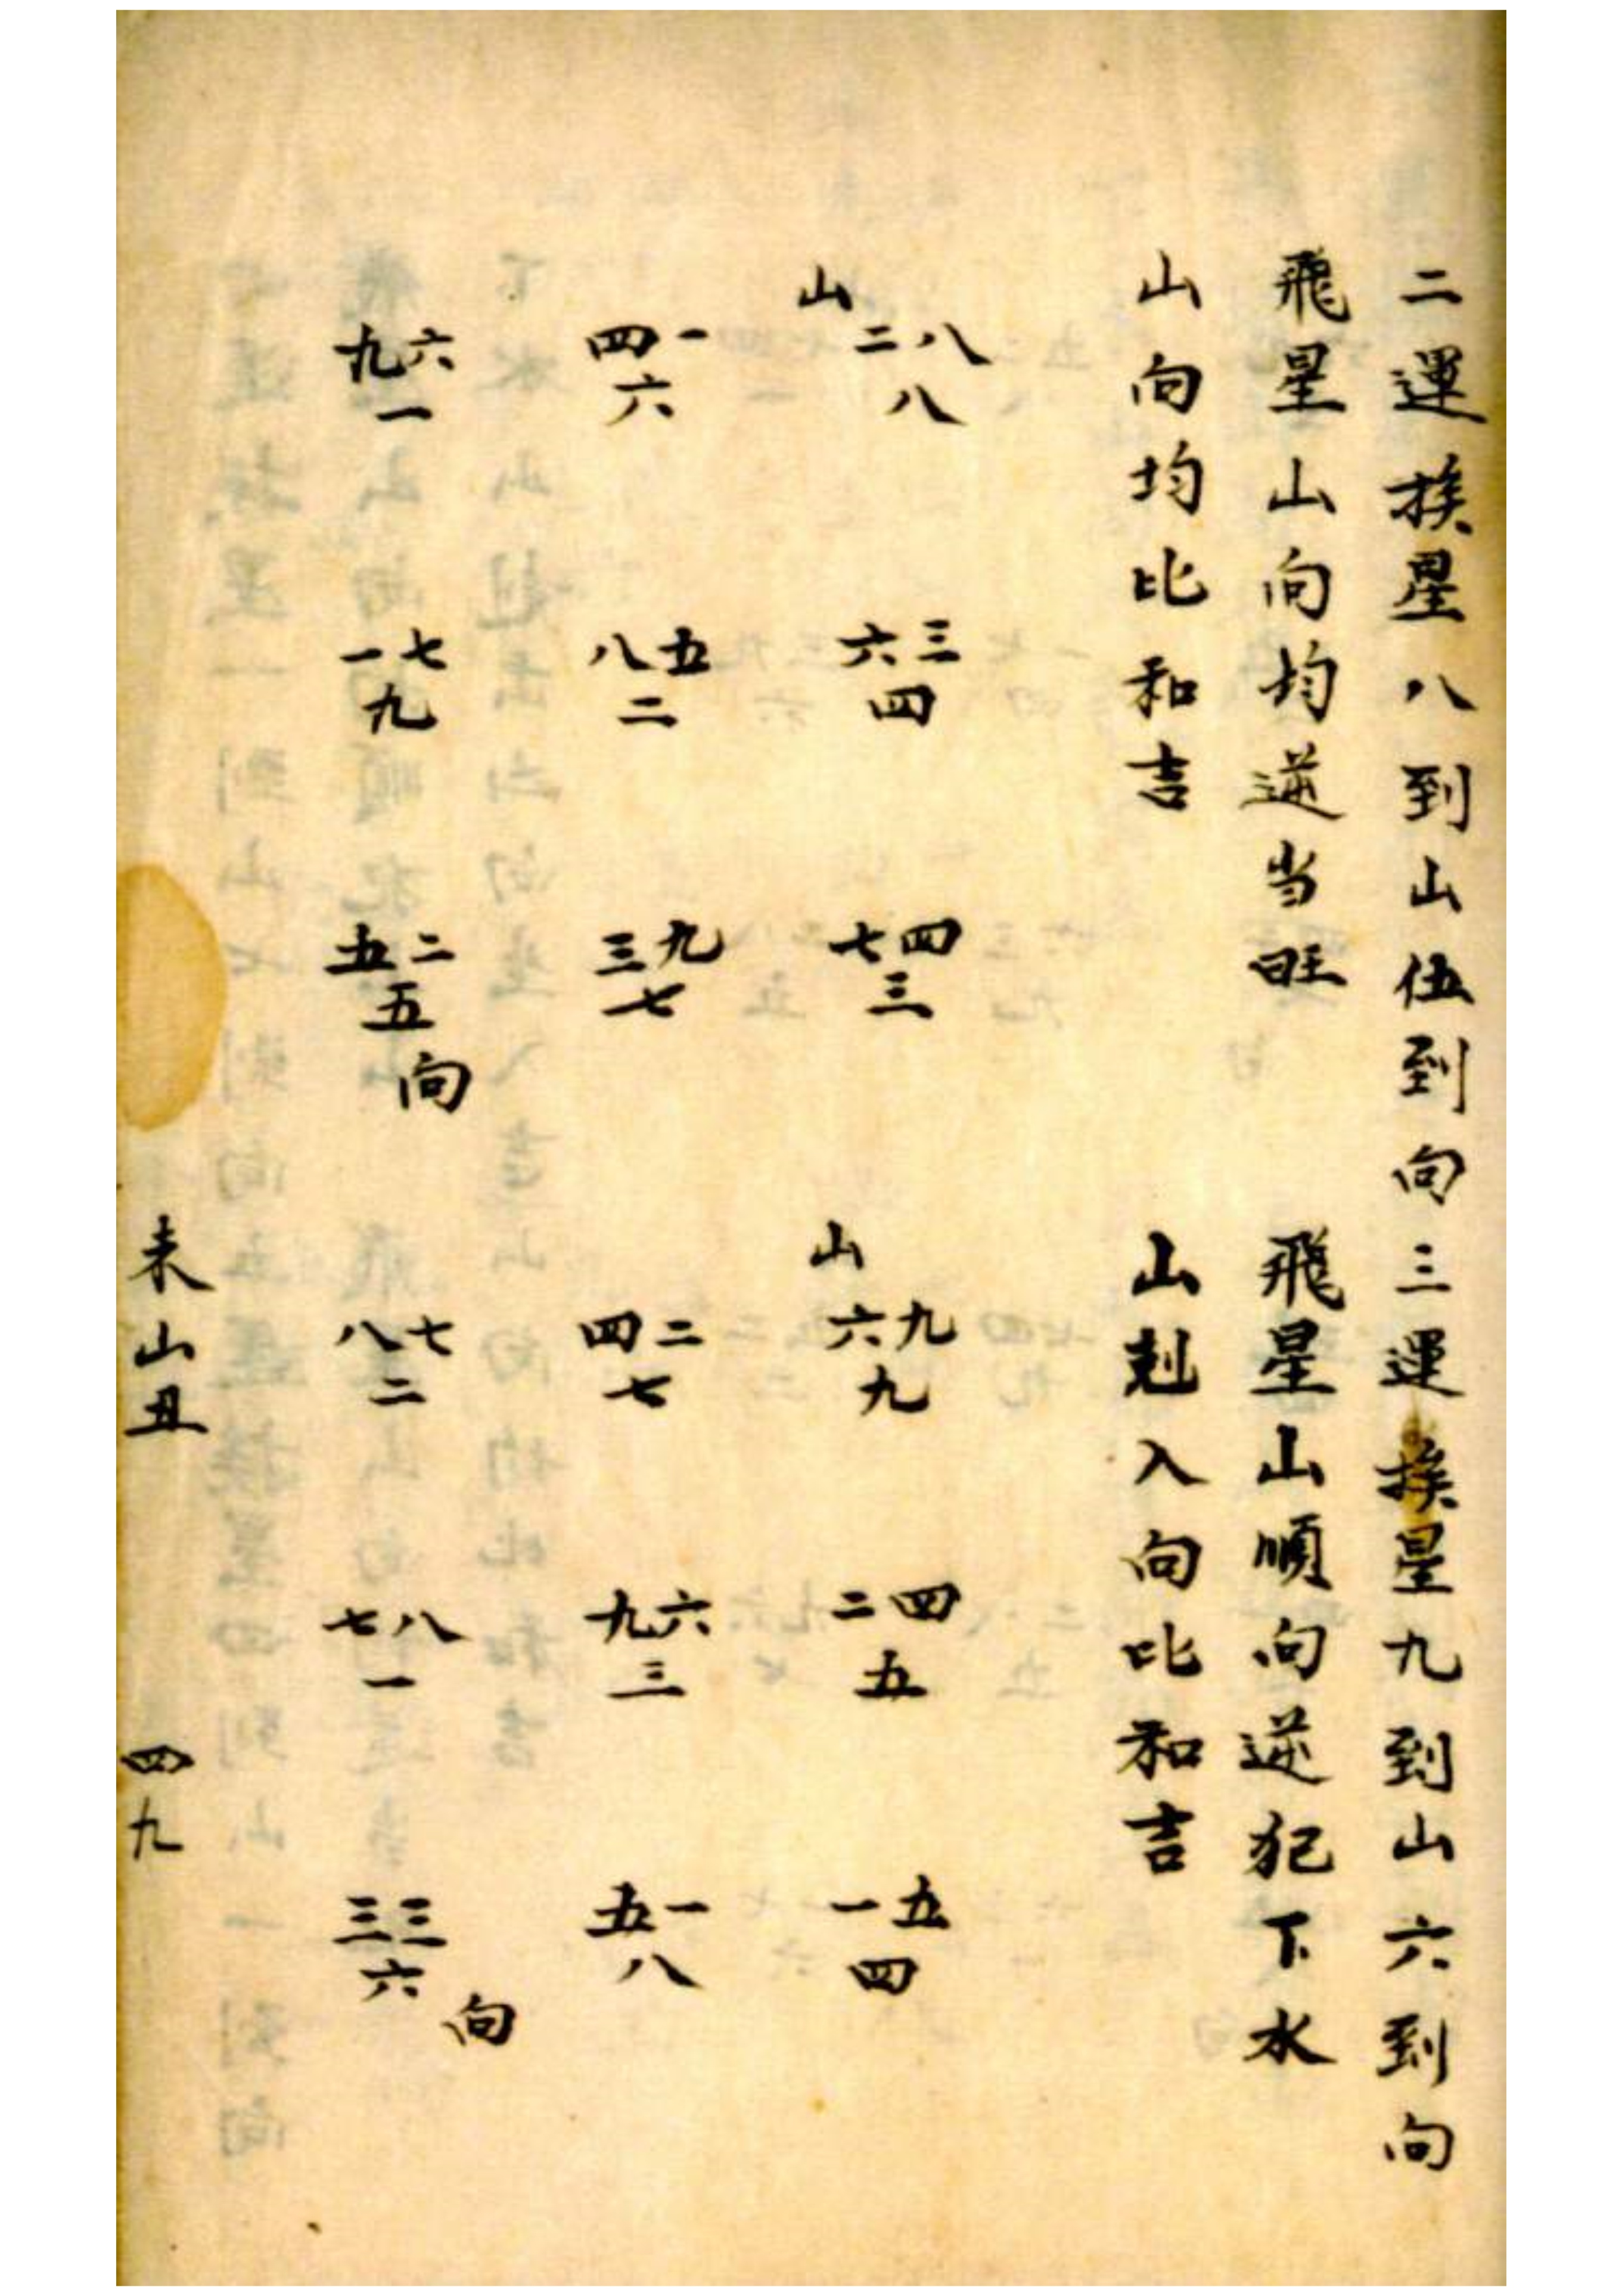 二運挨星八到山伍到向三運挨星九到山六到向
飛星山向均逆当旺
飛星山順向逆犯下水
山向均比和吉
山剋入向比和吉
山
二八
八
六三
四
七四
三
四一
六
八五
二
三九
七
九六
一
一七
九
五二
五
向
山
六九
九
二四
五
一五
四
四二
七
九六
三
五一
八
八七
二
七八
一
三三
六
向
未山丑
四九